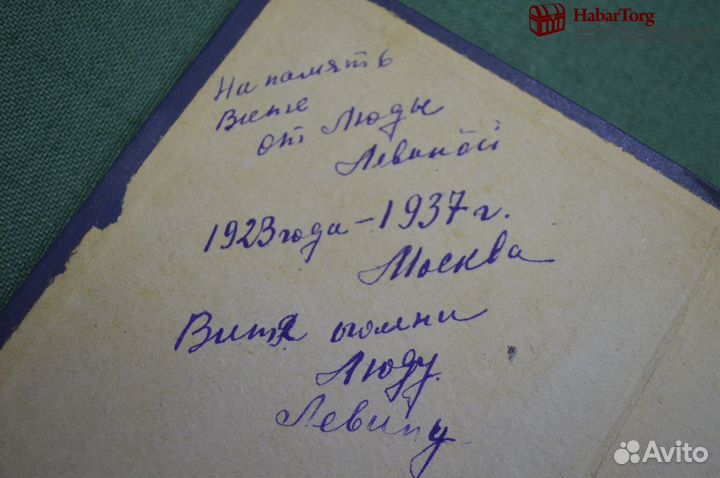 HabarTorg
На память
Вите
от Люды
Левиной
1923 года - 1937 г.
Москва
Витя помни
Люду.
Левину
Avito